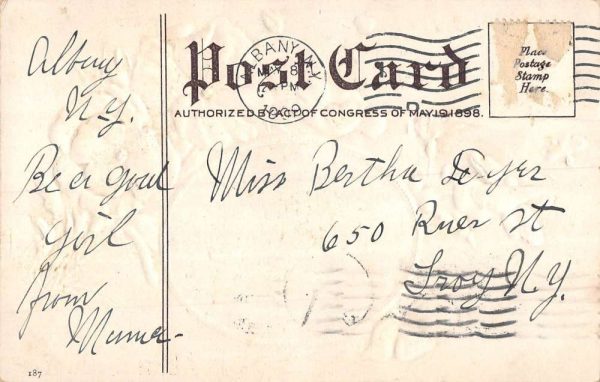 Post Card
AUTHORIZED BY ACT OF CONGRESS OF MAY 19, 1898.
ALBANY, N.Y.
MAY 8
PM
1909
Place
Postage
Stamp
Here.
Albany
N.Y.
Be a good
girl
from
Mama
Miss Bertha Dwyer
650 River st
Troy N.Y.
187